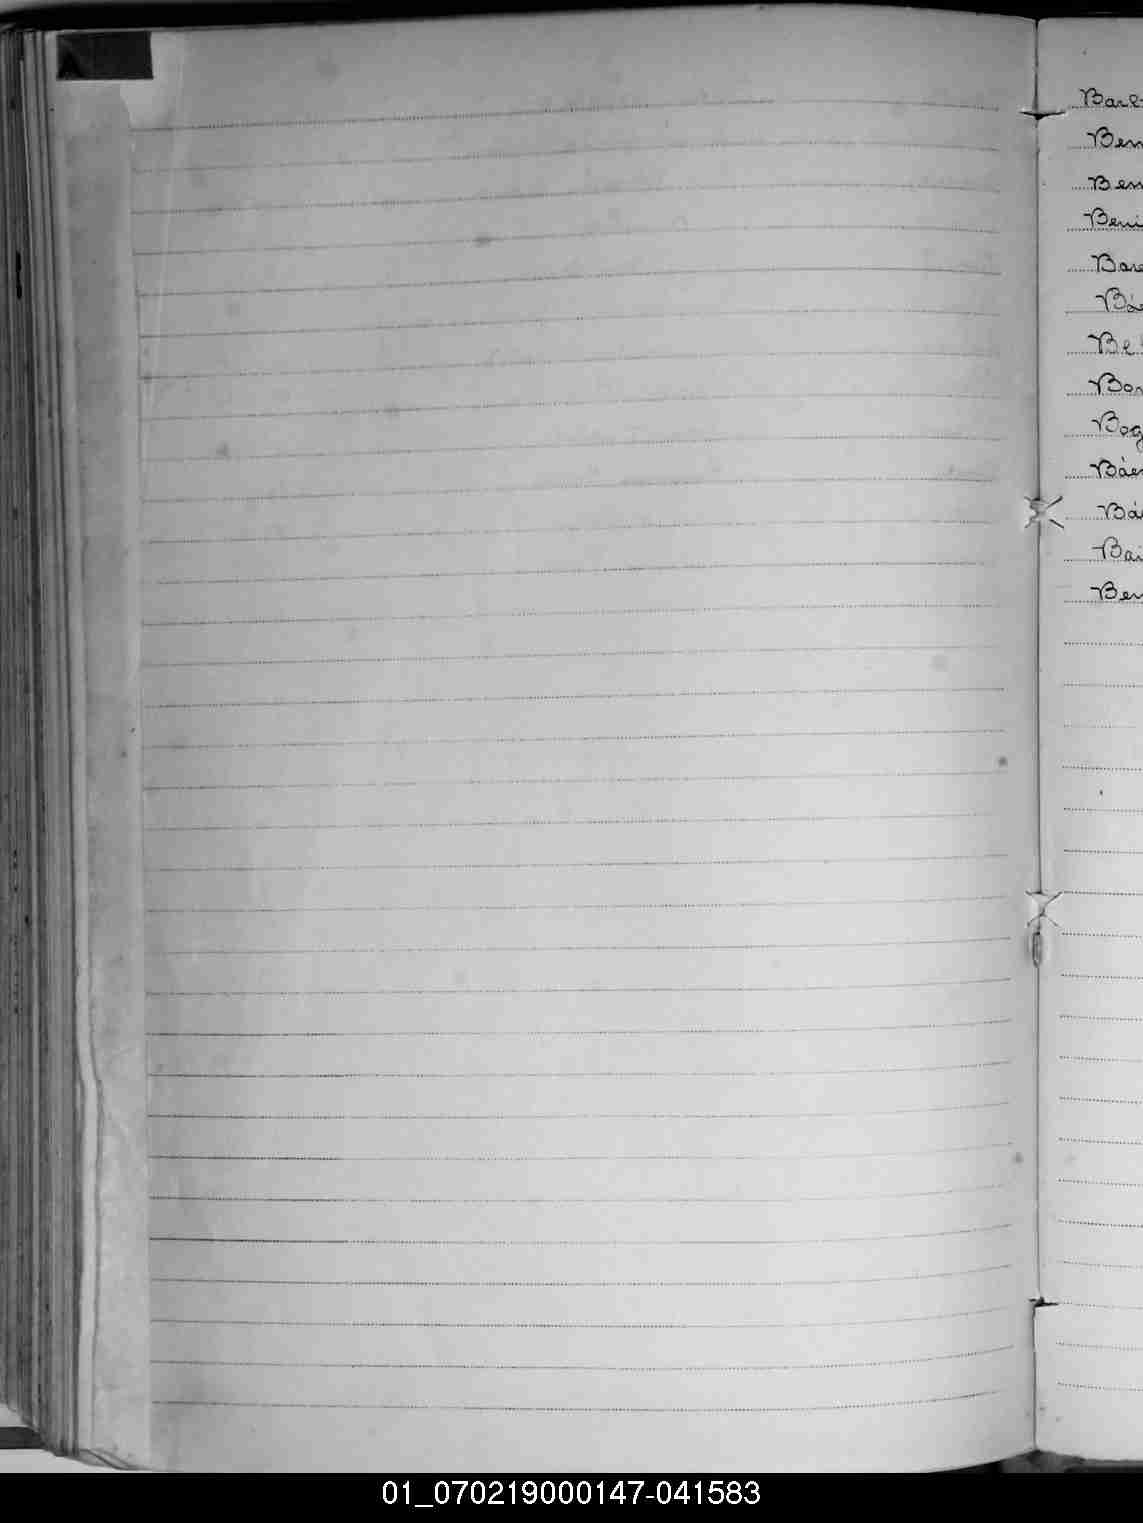 Bare
Ben
Ben
Beni
Bare
Bá
Be
Bon
Bog
Báe
Bá
Bai
Ben
01_070219000147-041583